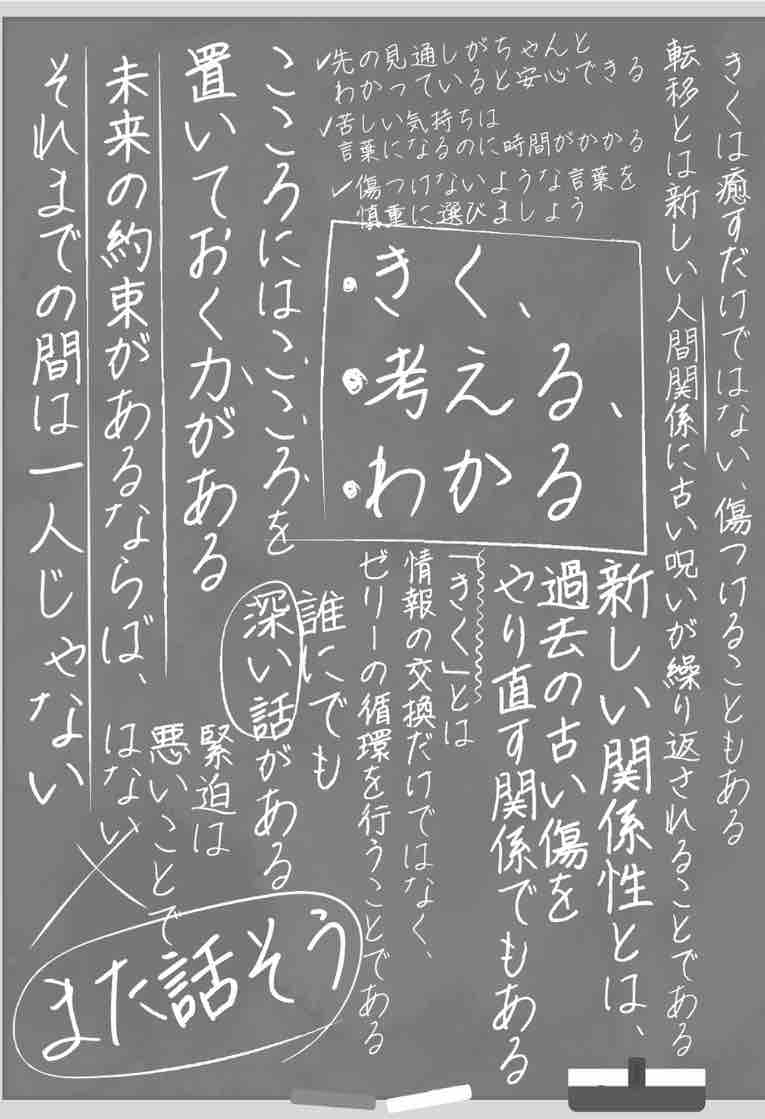 きくは癒すだけではない、傷つけることもある
転移とは新しい人間関係に古い呪いが繰り返されることである
✓先の見通しがちゃんと
わかっていると安心できる
✓苦しい気持ちは
言葉になるのに時間がかかる
✓傷つけないような言葉を
慎重に選びましょう
・きく、
・考える、
・わかる
新しい関係性とは、
過去の古い傷を
やり直す関係でもある
「きく」とは
情報の交換だけではなく、
ゼリーの循環を行うことである
こころにはこころを
置いておく力がある
誰にでも
深い話がある
未来の約束があるならば、
それまでの間は一人じゃない
緊迫は
悪いことで
はない
また話そう